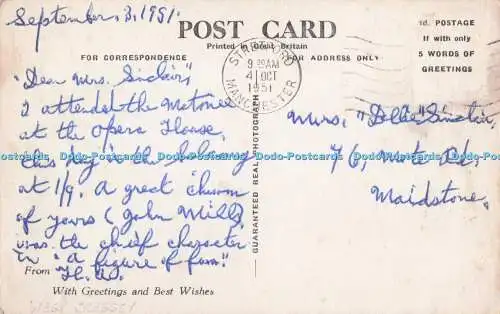 September, 3, 1951.
POST CARD
Printed in Great Britain
FOR CORRESPONDENCE
FOR ADDRESS ONLY
1d. POSTAGE
If with only
5 WORDS OF
GREETINGS
STRETFORD
9 AM
4 OCT
1951
MANCHESTER
GUARANTEED REAL PHOTOGRAPH
"Dear Mrs. Sinclair,
I attended the Matinee
at the Opera House,
this day in the balcony
at 1/9. A great chum
of yours (John Mills)
was the chief character
in "a figure of fun."
From H. W.
With Greetings and Best Wishes
Mrs. "Dollie" Sinclair,
76, Rd.,
Maidstone.
Dodo-Postcards Dodo-Postcards Dodo-Postcards Dodo-Postcards Dodo-Postcards Dodo-Postcards